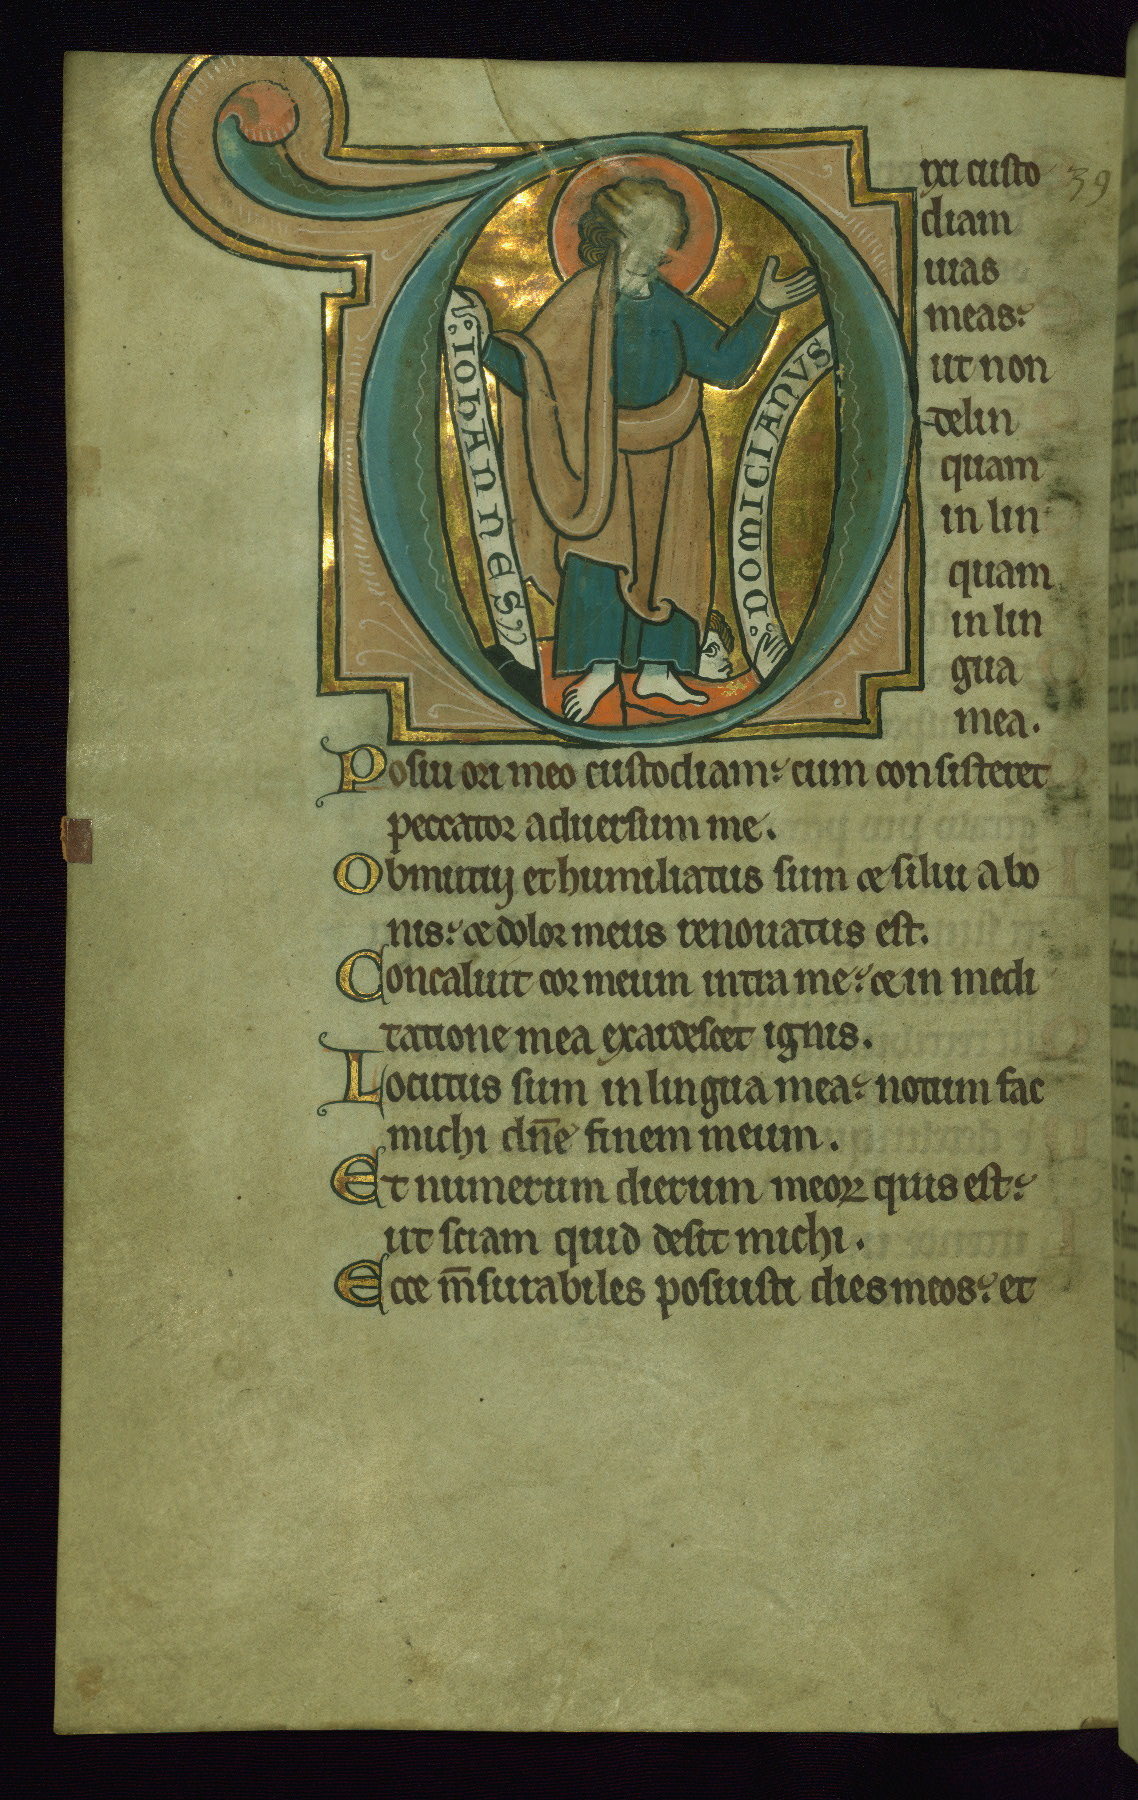 ixi custo 39
diam
uias
meas:
ut non
delin
quam
in lin
quam
in lin
gua
mea.
IOHANNES
DOMICIANVS
Posui ori meo custodiam: cum consisteret
peccator aduersum me.
Obmutuj et humiliatus sum & silui a bo
nis: & dolor meus renouatus est.
Concaluit cor meum intra me: & in medi
tatione mea exardescet ignis.
Locutus sum in lingua mea: notum fac
michi dn̄e finem meum.
Et numerum dierum meoꝝ quis est:
ut sciam quid desit michi.
Ecce m̄surabiles posuisti dies meos: et